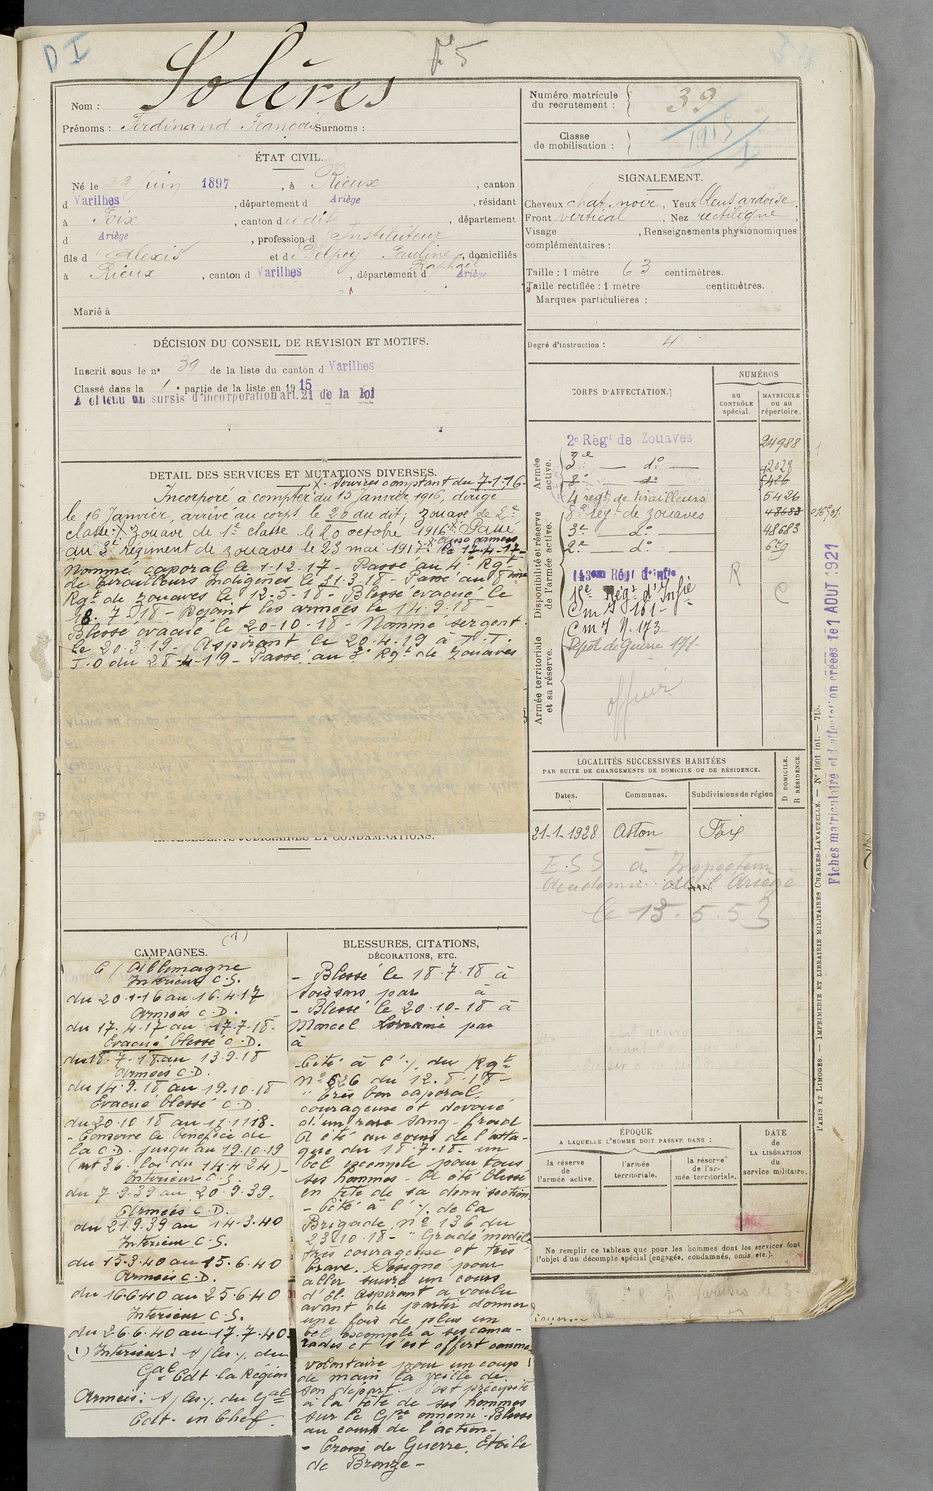 D I
N° 5
Nom : Solères
Prénoms : Ferdinand François Surnoms :
Numéro matricule du recrutement : 39
Classe de mobilisation : 1915
ÉTAT CIVIL.
Né le 22 Juin 1897, à Rieux, canton
d Varilhes, département d Ariège, résidant
à Foix, canton du dit, département
d Ariège, profession d Instituteur
fils d Alexis et de Delpey Pauline, domiciliés
Raphaël
à Rieux, canton d Varilhes, département d Ariège
Marié à
SIGNALEMENT.
Cheveux chat. noir, Yeux bleus ardoise,
Front vertical, Nez rectiligne,
Visage , Renseignements physionomiques
complémentaires :
Taille : 1 mètre 63 centimètres.
Taille rectifiée : 1 mètre centimètres.
Marques particulières :
Degré d'instruction : 4
DÉCISION DU CONSEIL DE RÉVISION ET MOTIFS.
Inscrit sous le n° 39 de la liste du canton d Varilhes
Classé dans la 1e partie de la liste en 1915
A obtenu un sursis d'incorporation art. 21 de la loi
DÉTAIL DES SERVICES ET MUTATIONS DIVERSES.
X. Sourires comptant du 7-1-16
Incorporé à compter du 15 janvier 1916, dirigé
le 16 Janvier, arrivé au corps le 20 du dit; zouave de 2e
classe; Zouave de 1e classe le 20 octobre 1916 X Passé
au 3e régiment de zouaves le 23 mai 1917. X aux armées le 17-4-17
Nommé caporal le 1-12-17 - Passé au 4e Rgt
de Tirailleurs Indigènes le 21-3-18 - Passé au 8ème
Rgt de Zouaves le 12-5-18 - Blessé évacué le
18-7-18 - Rejoint les armées le 14-9-18 -
Blessé évacué le 20-10-18 - Nommé sergent
le 20-3-19 - Aspirant le 20-4-19 à T.T.
J.O du 28-4-19 - Passé au 3e Rgt de Zouaves
CORPS D'AFFECTATION.
NUMÉROS
AU CONTRÔLE spécial.
MATRICULE ou au répertoire.
Armée active.
Disponibilité et réserve de l'armée active.
Armée territoriale et sa réserve.
2e Régt de Zouaves 24988
3e — do — 12028
8e — do — 5426
4 régt de tirailleurs 5426
8e régt de zouaves 48683
3e — do — 48683
2e — do — 679
143ème Régt d'Infie
Régt d'Infie
C m I 151
C m I N. 173
Dépôt de Guerre 171
R
C
officier
Fiches matriculaire et d'affectation créées le 1 AOUT 1921
PARIS ET LIMOGES. — IMPRIMERIE ET LIBRAIRIE MILITAIRES CHARLES-LAVAUZELLE. — N° 1001 int. — 715.
LOCALITÉS SUCCESSIVES HABITÉES
PAR SUITE DE CHANGEMENTS DE DOMICILE OU DE RÉSIDENCE.
Dates. Communes. Subdivisions de région
D DOMICILE. R RÉSIDENCE.
21-1-1928 Aston Foix
E.S.S à Inspection
Académie de l'Ariège
le 13.5.53
ANTÉCÉDENTS JUDICIAIRES ET CONDAMNATIONS.
CAMPAGNES.
(1)
C/ Allemagne
Intérieur C.S.
du 20-1-16 au 16-4-17
Armées C.D.
du 17.4.17 au 17-7-18-
Evacué blessé C.D.
du 18-7-18 au 13-9-18
Armées C.D.
du 14-9-18 au 19-10-18
Evacué blessé C.D.
du 20-10-18 au 17-11-18-
- Conserve le bénéfice de
la C.D. jusqu'au 19-10-19
(art 36. loi du 14-4-24)-
Intérieur C.S.
du 7-9-39 au 20-9-39-
Armées C.D.
du 21.9.39 au 14-3-40
Intérieur C.S.
du 15-3-40 au 15-6-40
Armées C.D.
du 16-6-40 au 25-6-40
Intérieur C.S.
du 26-6-40 au 17-7-40.
(1) Intérieur: s/les /. du
Gal Cdt la Région
Armées: s/les /. du Gal
Cdt. en Chef.
BLESSURES, CITATIONS,
DÉCORATIONS, ETC.
- Blessé le 18-7-18 à
Soissons par à
- Blessé le 20-10-18 à
Marcel Lorraine par
à
- Cité à l'/. du Rgt
N° 526 du 12-8-18-
"Très bon caporal,
courageux et dévoué
d'un rare sang-froid
A été au cours de l'atta-
que du 18-7-18- un
bel exemple pour tous
ses hommes - A été blessé
en tête de sa demi section
- Cité à l'/. de la
Brigade N° 136 du
23-10-18 - "Gradé modèle
très courageux et très
brave. Désigné pour
aller suivre un cours
d'El. Aspirant a voulu
avant de partir donner
une fois de plus un
bel exemple à ses cama-
rades et s'est offert comme
volontaire pour un coup
de main la veille de
son départ. S'est précipité
à la tête de ses hommes
sur le Gpe ennemi - Blessé
au cours de l'action -
- Croix de Guerre, Etoile
de Bronze -
ÉPOQUE
A LAQUELLE L'HOMME DOIT PASSER DANS :
la réserve de l'armée active.
l'armée territoriale.
la réserve de l'armée territoriale.
DATE DE LA LIBÉRATION du service militaire.
Ne remplir ce tableau que pour les hommes dont les services font
l'objet d'un décompte spécial (engagés, condamnés, omis, etc.).